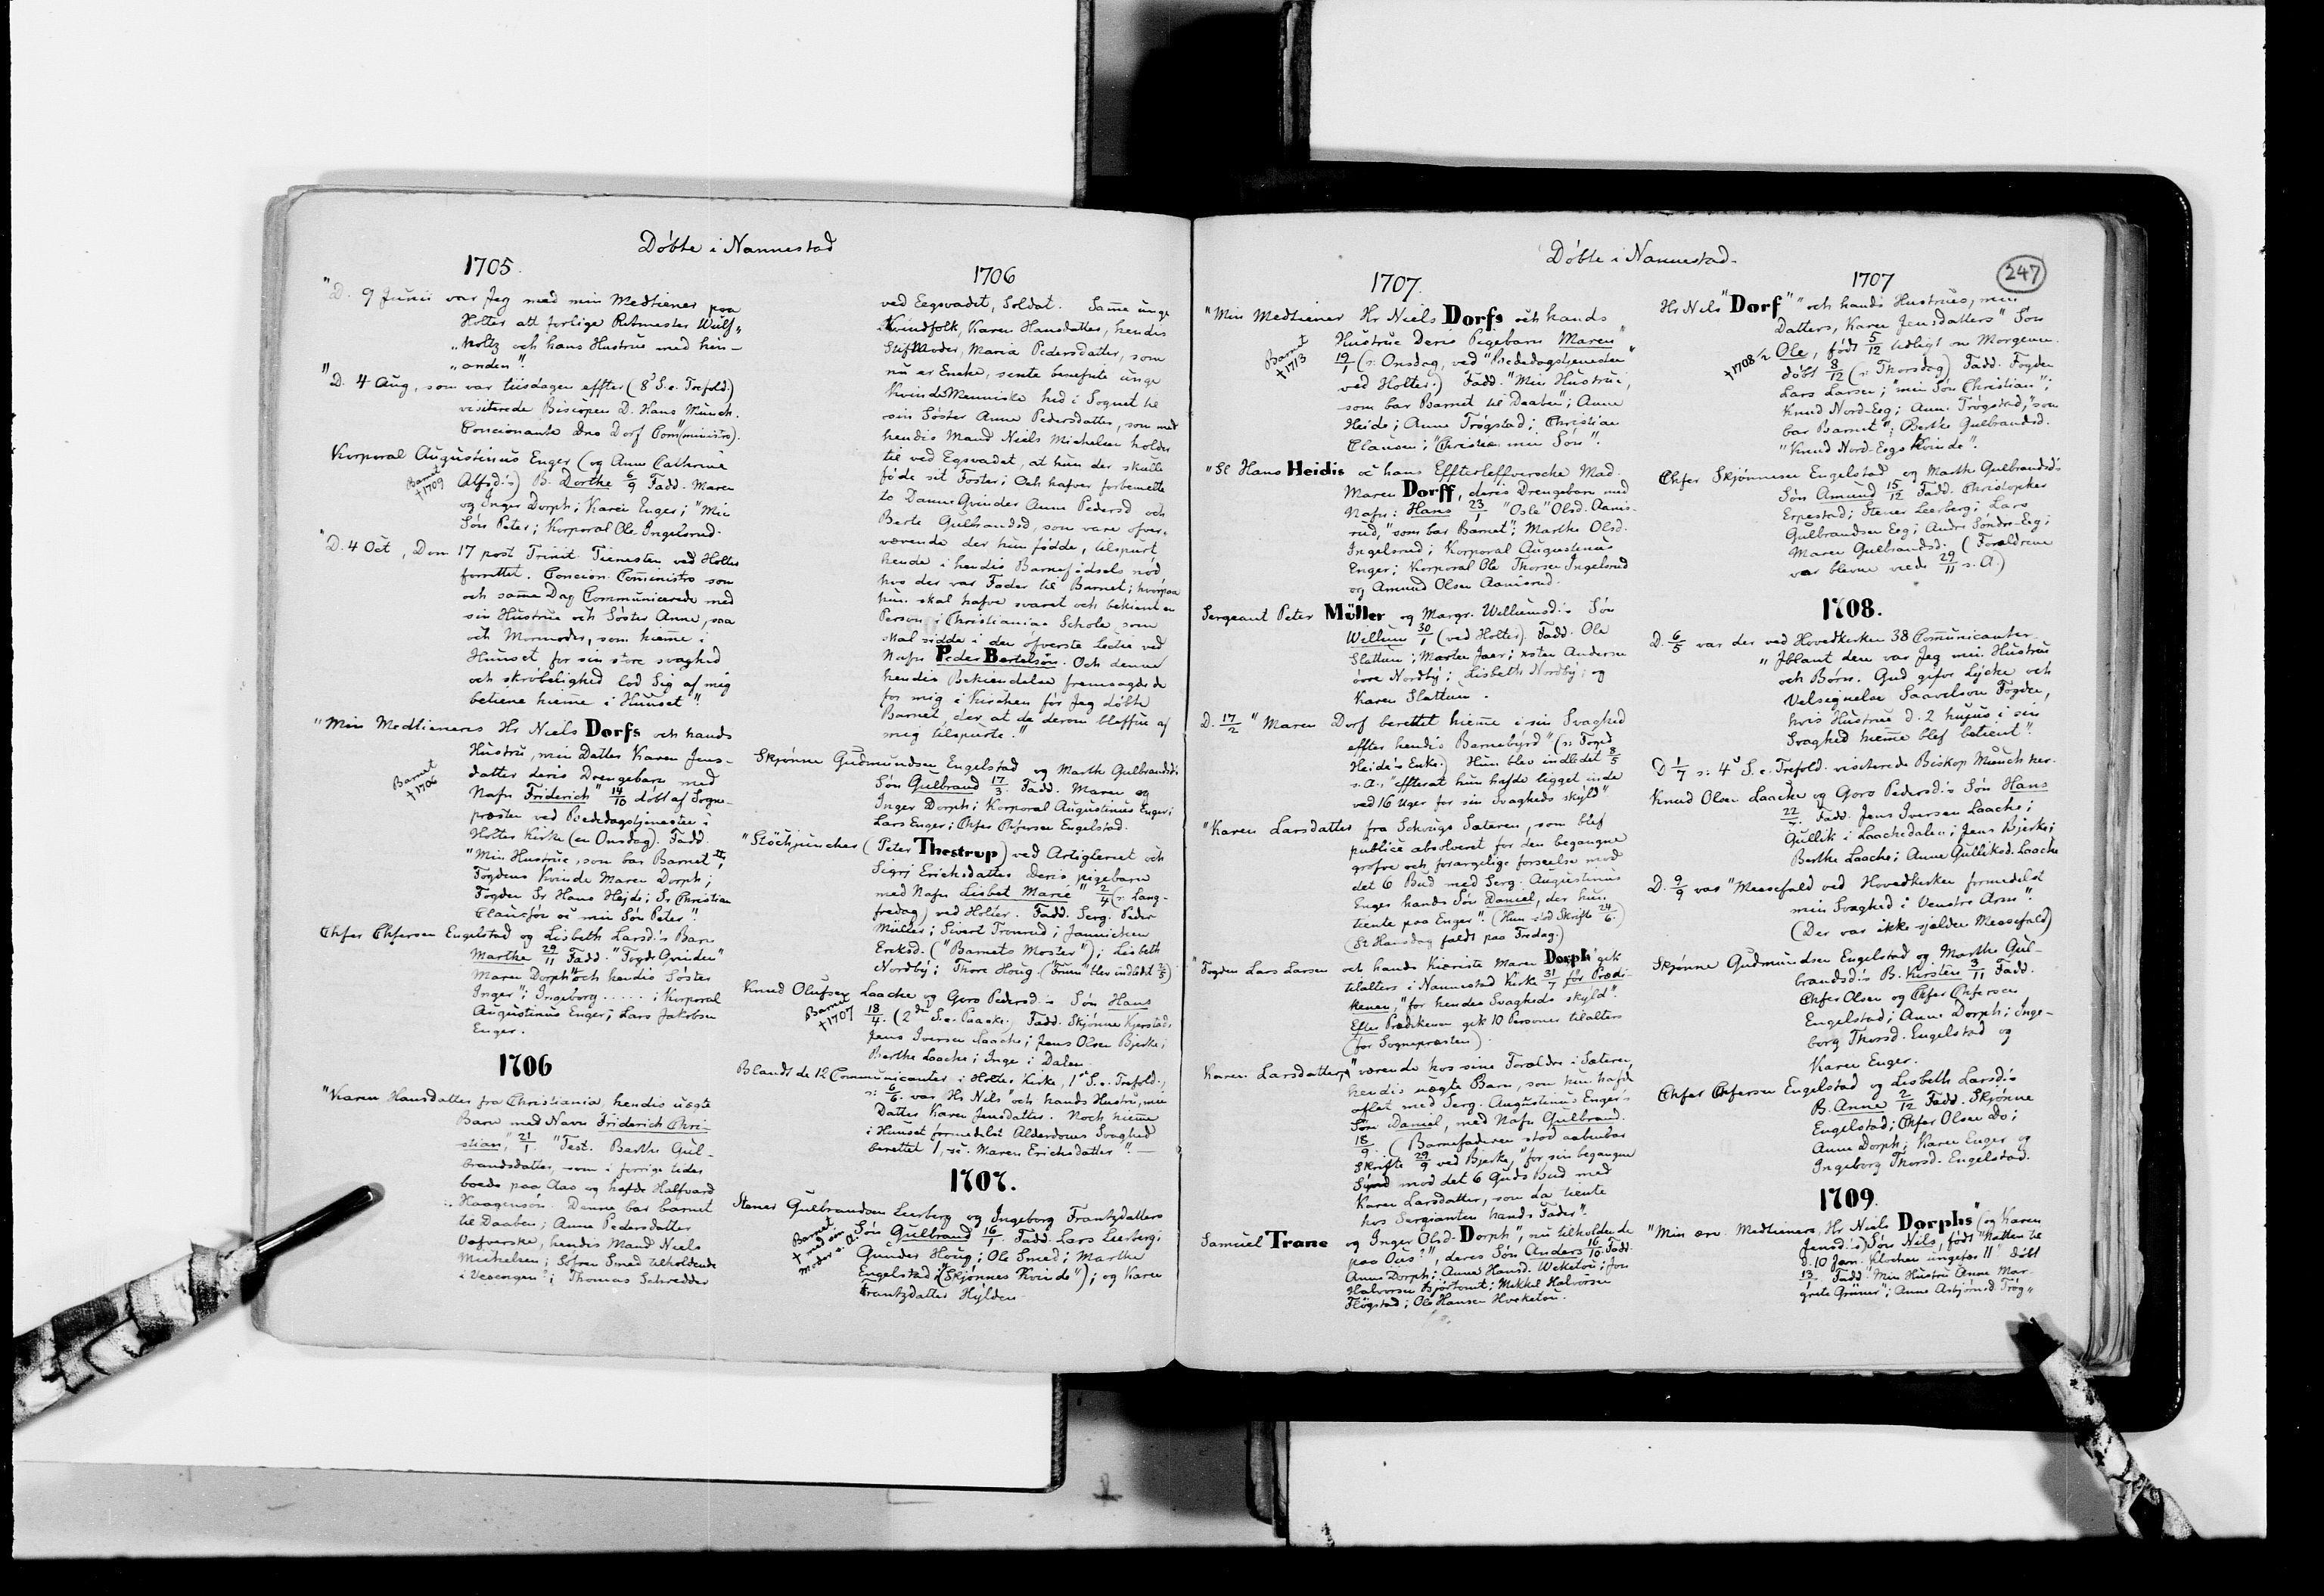 Døbte i Nannestad
1705.
"D. 9 Junii var Jeg med min Medtiener paa
Holter att forlige Ritmester Wulf„
„noltz och hans Hustrue med hin-
„anden".
"D. 4 Aug, som var tiisdagen effter (8de S. e. Trefold.)
visiterede Biscopen D. Hans Münch.
Concionante dno Dorf Com(ministro).
Korporal Augustinus Enger (og Anne Cathrine
Barnet
† 1709
Alfsd:s) B. Dorthe 6/9 Fadd. Maren
og Inger Dorph; Karen Enger; "Min
Søn Peter; Korporal Ole Ingelsrud.
"D. 4 Oct, Dom 17 post Trinit. Tienesten ved Holter
forrettet. Concion. Comministro som
och samme Dag Communicerede med
sin Hustrue och Søster Anne, saa
och Mormoder, som hieme i
Huuset for sin store svaghed
och skrøbelighed lod Sig af mig
betiene hieme i Huuset".
"Min Medtieneres Hr Niels Dorfs och hands
Hustru, min Datter Karen Jens-
datter deris Drengebarn med
Barnet
† 1706
Nafn Friderich" 14/10 døbt af Sogne-
præsten ved Bededagstjenesten i
Holter Kirke (en Onsdag). Fadd.
"Min Hustrue, som bar Barnet";
Fogdens Kvinde Maren Dorph;
Fogden Sr Hans Hejde; Sr Christian
Clausøn oc min Søn Peter".
Chfer Chfersen Engelstad og Lisbeth Larsd:s Barn
Marthe 29/11 Fadd. "Fogd Qvinden"
Maren Dorph "och hendis Søster
Inger"; Ingeborg .....; Korporal
Augustinus Enger; Lars Jakobsen
Enger.
1706
"Karen Hansdatter fra Christiania, hendis uægte
Barn med Navn Friderich Chri-
stian", 21/1. "Test. Berthe Gul-
brandsdatter, som i forrige tider
boede paa Aas og hafde Halfvard
Haagensøn. Denne bar barnet
til Daaben; Anne Pedersdatter
Væfverske, hendis Mand Niels
Michelsen; Søfren Smed tilholdende
i Vesengen; Thomas Schredder
1706
ved Eegsvadet, Soldat. Same unge
Kvindfolk, Karen Hansdatter, hendis
Stif Moder, Maria Pedersdatter, som
nu er Encke, sente benefnte unge
Kvinde Menniske hid i Sognet til
sin Søster Anne Pedersdatter, som med
hendis Mand Niels Michelsen holder
til ved Egsvadet, at hun der skulle
føde sit Foster; Och hafver forbemelte
to Danne Qvinder Anne Pedersd och
Berte Gulbrandsd, som vare ofver„
værende der hun fødde, tilspurt
hende i hendis Barnefødsels nød
hvo der var Fader til Barnet; hvorpaa
hun skal hafve svaret och bekient en
Person i Christianias Schole, som
skal sidde i den øfverste Lectie ved
Nafn Peder Bertelsøn. Och denne
hendis Bekiendelse fremsagde de
for mig i Kirchen før Jeg døbte
Barnet, der at de derom bleffue af
mig tilspurte."
Skjønne Gudmundsen Engelstad og Marthe Gulbrandsd:s
Søn Gulbrand 17/3. Fadd. Maren og
Inger Dorph; Korporal Augustinus Enger;
Lars Enger; Chfer Chfersen Engelstad.
"Stöchjuncher (Peter Thestrup) ved Artigleriet och
Sigrj Erichsdatter deris pigebarn
med Nafn Lisbet Marie" 2/4 (: Lang-
fredag) ved Holter. Fadd. Serg. Peder
Müller; Sivert Tronrud; Jannicken
Ericksd. ("Barnets Moster"); Lisbeth
Nordby; Thore Houg. ("Fruen" blev indledt 2/5)
Knud Olufsen Laache og Goro Pedersd:s Søn Hans
Barnet
† 1707
18/4. (2den S. e. Paaske.) Fadd. Skjønne Kjerstad;
Jens Iversen Laache; Jens Olsen Bjerke;
Berthe Laache; Inge i Dalen.
Blandt de 12 Communicanter i Holter Kirke, 1ste S. e. Trefold.,
: 6/6. var Hr Nils "och hands Hustru, min
Datter Karen Jensdatter. Noch hieme
i Huuset formedelst Alderdoms Svaghed
berettet 1, . Maren Erichsdatter". —
1707.
Stener Gulbrandsen Leerberg og Ingeborg Frantzdatters
Barnet
† med sin
Moder s. A.
Søn Gulbrand 16/1. Fadd. Lars Leerberg;
Gunder Houg; Ole Smed; Marthe
Engelstad ("Skjønnes Kvinde"); og Karen
Frantzdatter Hylden.
Døbte i Nannestad.
247
1707.
"Min Medtiener Hr Niels Dorfs och hands
Hustrue deris Pigebarn Maren"
Barnet
† 1713
19/1 (: Onsdag, ved "Bededagstjenesten"
ved Holter.) Fadd. "Min Hustrue,
som bar Barnet til Daaben"; Anne
Heide; Anne Trøgstad; Christian
Clausen; "Christian min Søn".
"Sl Hans Heidis oc hans Effterleffversche Mad.
Maren Dorff, deris Drengebarn med
Nafn: Hans 23/1 "Osle" Olsd. Aamis-
rud, "som bar Barnet"; Marthe Olsd.
Ingelsrud; Korporal Augustinus
Enger; Korporal Ole Thorsen Ingelsrud
og Amund Olsen Aamisrud.
Sergeant Peter Müller og Margr. Willumsd:s Søn
Willum 30/1 (ved Holter). Fadd. Ole
Slattum; Morten Jaer; xsten Andersen
övre Nordby; Lisbeth Nordby; og
Karen Slattum.
D. 17/2 "Maren Dorf berettet hieme i sin Svaghed
effter hendis Barnebyrd" (: Fogd
Heide's Enke.) Hun blev indledet 8/5
s. A., "effterat hun hafde ligget inde
ved 16 Uger for sin Svagheds skyld".
"Karen Larsdatter fra Schougs Sæteren, som blef
publice absolveret for den begangne
grofve och forargelige forseelse mod
det 6 Bud med Serg. Augustinus
Enger hands Søn Daniel, der hun
tiente paa Enger". (Hun stod Skrifte 24/6.)
(St Hansdag faldt paa Fredag.)
"Fogden Lars Larsen och hands Kiæriste Maren Dorph" gik
tilalters i Nannestad Kirke 31/7 før Prædi-
kenen, "for hendes Svagheds skyld".
Efter Prædikenen gik 10 Personer tilalters
(for Sognepræsten).
Karen Larsdatter, "værende hos sine Forældre i Sæteren,
hendis uægte Barn, som hun hafde
aflet med Serg. Augustinus Enger's
Søn Daniel, med Nafn Gulbrand.
18/9. (Barnefaderen stod aabenbar
Skrifte 29/9 ved Bjerke, "for sin begangne
Synd mod det 6 Guds Bud med
Karen Larsdatter, som da tiente
hos Sergianten hands Fader".
Samuel Trane og Inger Olsd. Dorph", nu tilholdende
paa Ous?", deres Søn Anders 16/10. Fadd.
Anne Dorph; Anne Hansd. Weketon; Jon
Halvorsen; Mikkel Halvorsen
Flögstad; Ole Hansen Hveketon.
1707
Hr Nils "Dorf" "och hands Hustrues, min
Datters, Karen Jensdatters" Søn
† 1708 1/2
Ole, født 5/12 tidligt om Morgenen.
døbt 8/12 (: Thorsdag) Fadd. Fogden
Lars Larsen; "min Søn Christian";
Knud Nord-Eeg; Anne Trøgstad, "som
bar Barnet"; Berthe Gulbrandsd.
"Knud Nord-Eegs Kvinde".
Chfer Skjønnesen Engelstad og Marthe Gulbrandsd:s
Søn Amund 15/12 Fadd. Christopher
Erpestad; Stener Leerberg; Lars
Gulbrandsen Eeg; Anders Søndre-Eeg;
Maren Gulbrandsd. (Forældrene
var blevne viede 29/11 s. A.)
1708.
D. 6/5 var der ved Hovedkirken 38 Communicanter.
"Iblant dem var Jeg min Hustrue
och Børn. Gud gifve Lycke och
Velsignelse Saavelsom Fogden,
hvis Hustrue d. 2 hujus i sin
Svaghed hieme blef betient".
D 1/7 : 4de S. e. Trefold. visiterede Biskop Münch her.
Knud Olsen Laache og Goro Pedersd:s Søn Hans
22/7. Fadd. Jens Iversen Laache;
Gullik i Laachedalen; Jens Bjerke;
Berthe Laache; Anne Gulliksd. Laache
D. 9/9 var "Messefald ved Hovedkirken formedelst
min Svaghed i Venstre Arm".
(Der var ikke sjelden Messefald)
Skjønne Gudmundsen Engelstad og Marthe Gul-
brandsd:s B. Kirsten 3/11 Fadd.
Chfer Olsen og Chfer Chfersen
Engelstad; Anne Dorph; Inge-
borg Thorsd. Engelstad og
Karen Enger.
Chfer Chfersen Engelstad og Lisbeth Larsd:s
B. Anne 2/12 Fadd. Skjønne
Engelstad; Chfer Olsen do;
Anne Dorph; Karen Enger og
Ingeborg Thorsd. Engelstad.
1709.
"Min ærv. Medtieners Hr Niels Dorphs" (og Karen
Jensd:s) Søn Nils, født "Natten til
d. 10 Jan. Klochen ungefer 11" døbt
13/1. Fadd. "Min Hustru Anne Mar-
grete Gruner"; Anne Asbjørnsd. Trög„